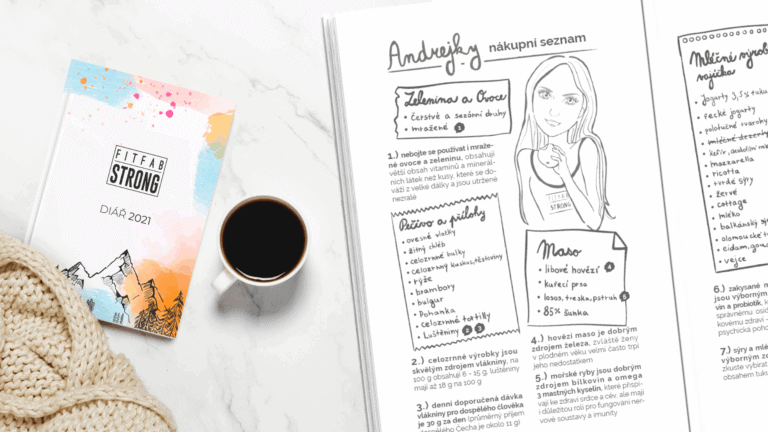 FITFAB
STRONG
DIÁŘ 2021
Andrejky nákupní seznam
Zelenina a Ovoce
• čerstvé a sezónní druhy
• mražené 1
1.) nebojte se používat i mraže-
né ovoce a zeleninu, obsahují
větší obsah vitamínů a minerál-
ních látek než kusy, které se do-
váží z velké dálky a jsou utržené
nezralé
FITFAB
STRONG
Pečivo a přílohy
• ovesné vločky
• žitný chléb
• celozrnné bulky
• celozrnný kuskus, těstoviny
• rýže
• brambory
• bulgur
• Pohanka
• celozrnné tortilly
• Luštěniny 2 3
2.) celozrnné výrobky jsou
skvělým zdrojem vlákniny, na
100 g obsahují 6 - 15 g, luštěniny
mají až 18 g na 100 g
3.) denní doporučená dávka
vlákniny pro dospělého člověka
je 30 g za den (průměrný příjem
dospělého Čecha je okolo 11 g)
Maso
• libové hovězí 4
• kuřecí prsa
• losos, treska, pstruh 5
• 85% šunka
4.) hovězí maso je dobrým
zdrojem železa, zvláště ženy
v plodném věku velmi často trpí
jeho nedostatkem
5.) mořské ryby jsou dobrým
zdrojem bílkovin a omega
3 mastných kyselin, které přispí-
vají ke zdraví srdce a cév, ale mají
i důležitou roli pro fungování ner-
vové soustavy a imunity
Mléčné výrob
vajíčka
• jogurty 3,5% tuku
• řecké jogurty
• polotučné tvarohy
• mléčné dezerty
• kefír, acidofilní
• mozzarella
• ricotta
• tvrdé sýry
• žervé
• cottage
• mléko
• balkánský sýr
• olomoucké
• eidam,
• vejce
6.) zakysané m
jsou výborným
vin a probiotik,
správnému
kovému zdraví -
psychická poho
7.) sýry a mlé
výborným zd
zkuste vybírat
obsahem tuku